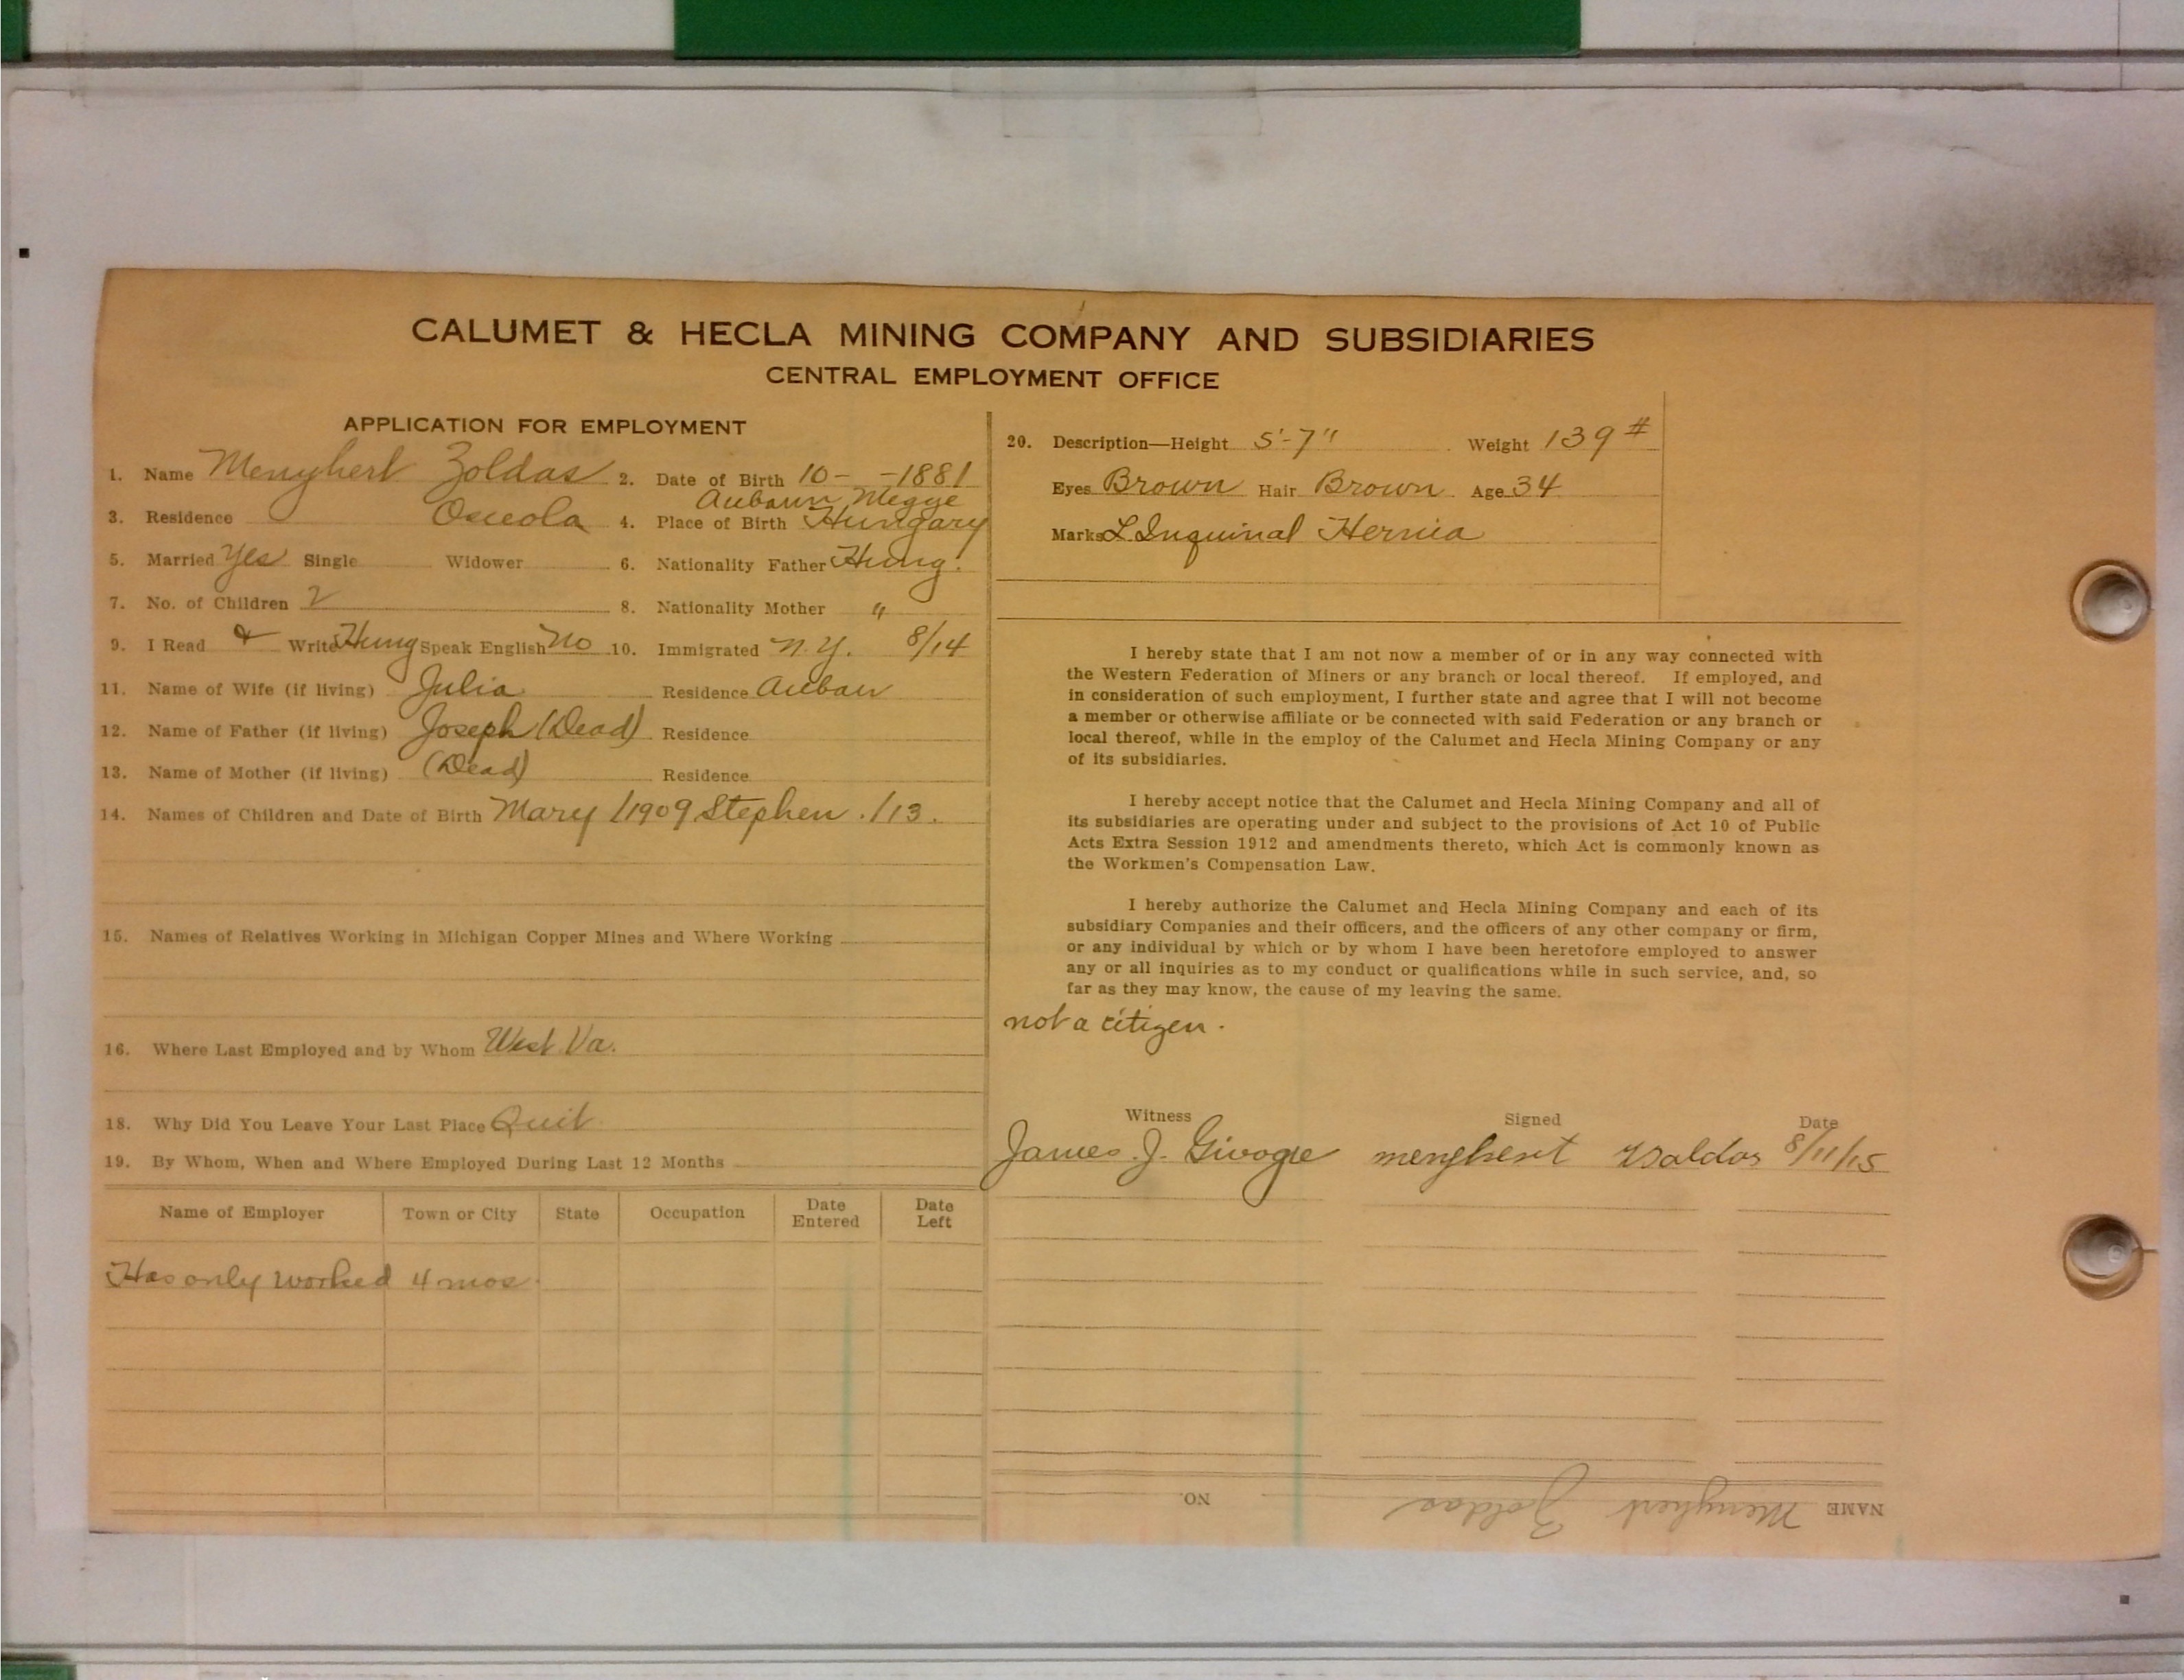 CALUMET & HECLA MINING COMPANY AND SUBSIDIARIES
CENTRAL EMPLOYMENT OFFICE
APPLICATION FOR EMPLOYMENT
1. Name Menyhert Zoldas 2. Date of Birth 10- -1881
Aubaun Megye
3. Residence Osceola 4. Place of Birth Hungary
5. Married Yes Single Widower 6. Nationality Father Hung.
7. No. of Children 2 8. Nationality Mother "
9. I Read & Write Hung Speak English No 10. Immigrated N.Y. 8/14
11. Name of Wife (if living) Julia Residence Aubau
12. Name of Father (if living) Joseph (Dead) Residence
13. Name of Mother (if living) (Dead) Residence
14. Names of Children and Date of Birth Mary /1909 Stephen ./13.
15. Names of Relatives Working in Michigan Copper Mines and Where Working
16. Where Last Employed and by Whom West. Va.
18. Why Did You Leave Your Last Place Quit
19. By Whom, When and Where Employed During Last 12 Months
Name of Employer Town or City State Occupation Date Entered Date Left
Has only worked 4 mos.
20. Description—Height 5'-7" Weight 139#
Eyes Brown Hair Brown Age 34
Marks L. Inquinal Hernia
I hereby state that I am not now a member of or in any way connected with
the Western Federation of Miners or any branch or local thereof. If employed, and
in consideration of such employment, I further state and agree that I will not become
a member or otherwise affiliate or be connected with said Federation or any branch or
local thereof, while in the employ of the Calumet and Hecla Mining Company or any
of its subsidiaries.
I hereby accept notice that the Calumet and Hecla Mining Company and all of
its subsidiaries are operating under and subject to the provisions of Act 10 of Public
Acts Extra Session 1912 and amendments thereto, which Act is commonly known as
the Workmen's Compensation Law.
I hereby authorize the Calumet and Hecla Mining Company and each of its
subsidiary Companies and their officers, and the officers of any other company or firm,
or any individual by which or by whom I have been heretofore employed to answer
any or all inquiries as to my conduct or qualifications while in such service, and, so
far as they may know, the cause of my leaving the same.
not a citizen.
Witness Signed Date
James J. menghert 8/11/15
NAME Menyhert Zoldas NO.